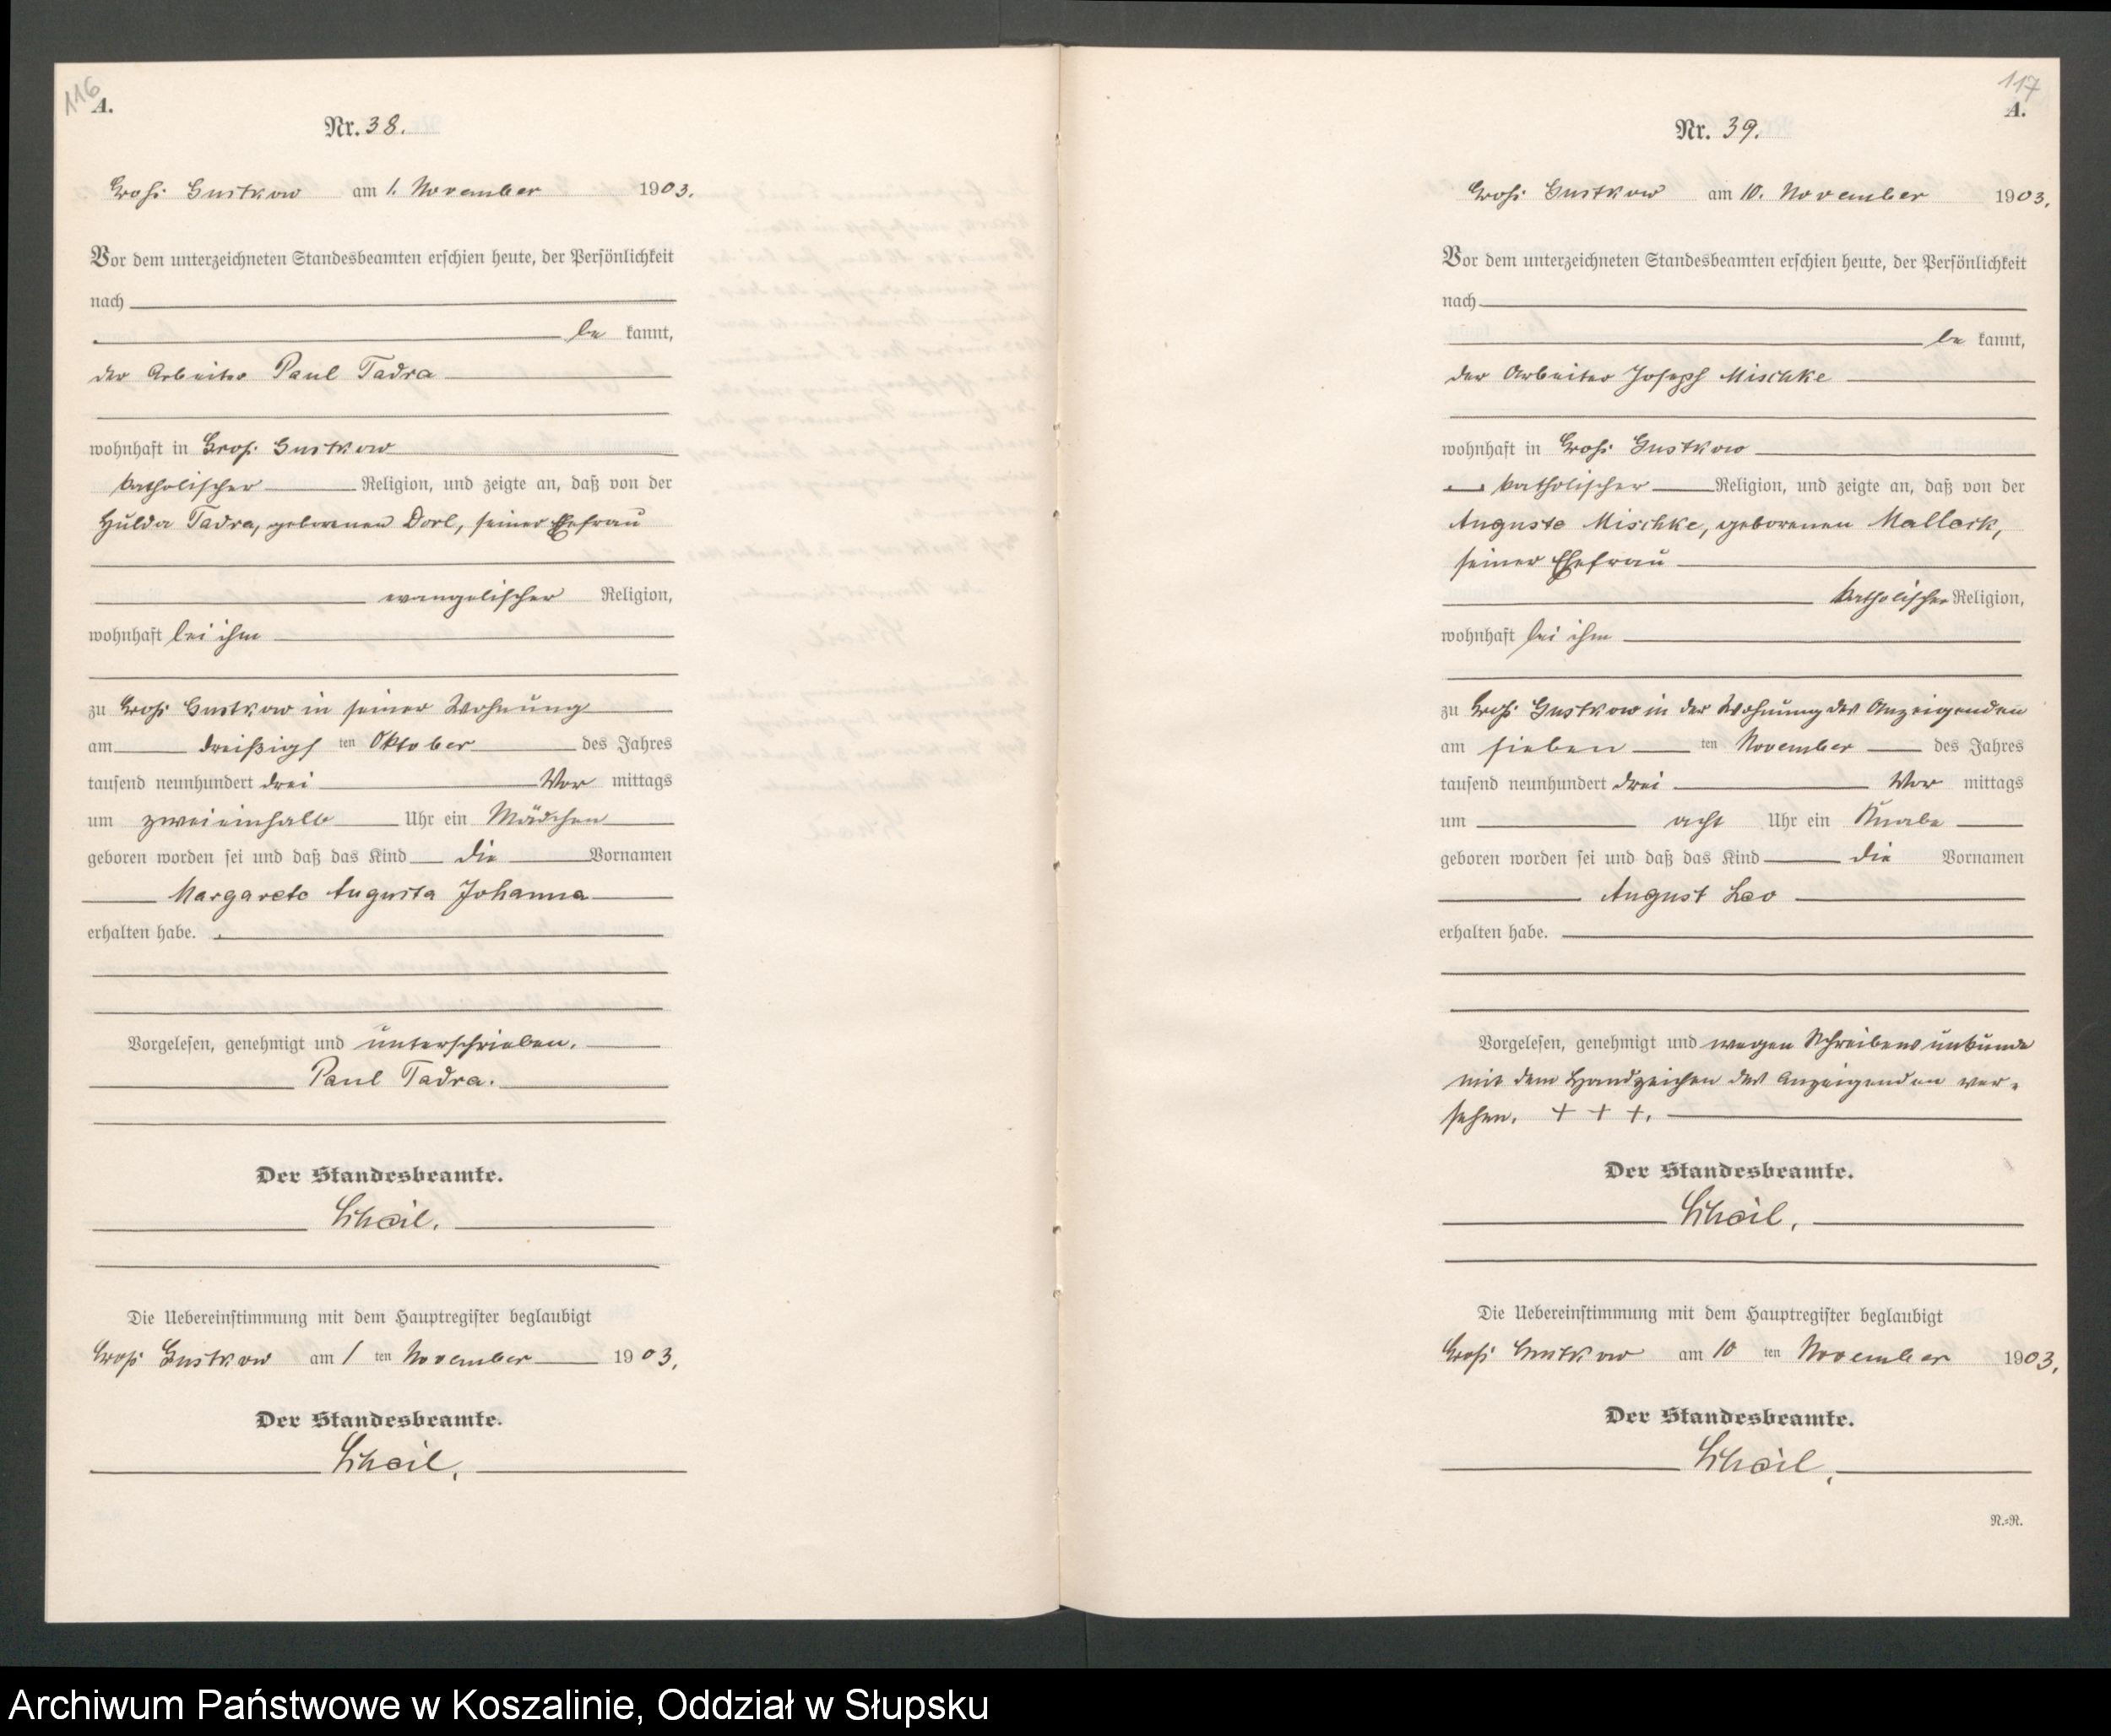 116
A.
Nr. 38.
Groß Gustkow am 1. November 1903.
Vor dem unterzeichneten Standesbeamten erschien heute, der Persönlichkeit
nach
be kannt,
der Arbeiter Paul Tadra
wohnhaft in Groß Gustkow
katholischer Religion, und zeigte an, daß von der
Hulda Tadra, geborenen Dorl, seiner Ehefrau
evangelischer Religion,
wohnhaft bei ihm
zu Groß Gustkow in seiner Wohnung
am dreißigs ten Oktober des Jahres
tausend neunhundert drei Vor mittags
um zweieinhalb Uhr ein Mädchen
geboren worden sei und daß das Kind die Vornamen
Margarete Augusta Johanna
erhalten habe.
Vorgelesen, genehmigt und unterschrieben.
Paul Tadra.
Der Standesbeamte.
Die Uebereinstimmung mit dem Hauptregister beglaubigt
Groß Gustkow am 1 ten November 1903.
Der Standesbeamte.
117
A.
Nr. 39.
Groß Gustkow am 10. November 1903.
Vor dem unterzeichneten Standesbeamten erschien heute, der Persönlichkeit
nach
be kannt,
der Arbeiter Joseph Mischke
wohnhaft in Groß Gustkow
katholischer Religion, und zeigte an, daß von der
Auguste Mischke, geborenen Malleck,
seiner Ehefrau
katholischer Religion,
wohnhaft bei ihm
zu Groß Gustkow in der Wohnung des Anzeigenden
am sieben ten November des Jahres
tausend neunhundert drei Vor mittags
um acht Uhr ein Knabe
geboren worden sei und daß das Kind die Vornamen
August Leo
erhalten habe.
Vorgelesen, genehmigt und wegen Schreibensunkunde
mit dem Handzeichen des Anzeigenden ver-
sehen. + + +.
Der Standesbeamte.
Die Uebereinstimmung mit dem Hauptregister beglaubigt
Groß Gustkow am 10 ten November 1903.
Der Standesbeamte.
N.=N.
Archiwum Państwowe w Koszalinie, Oddział w Słupsku